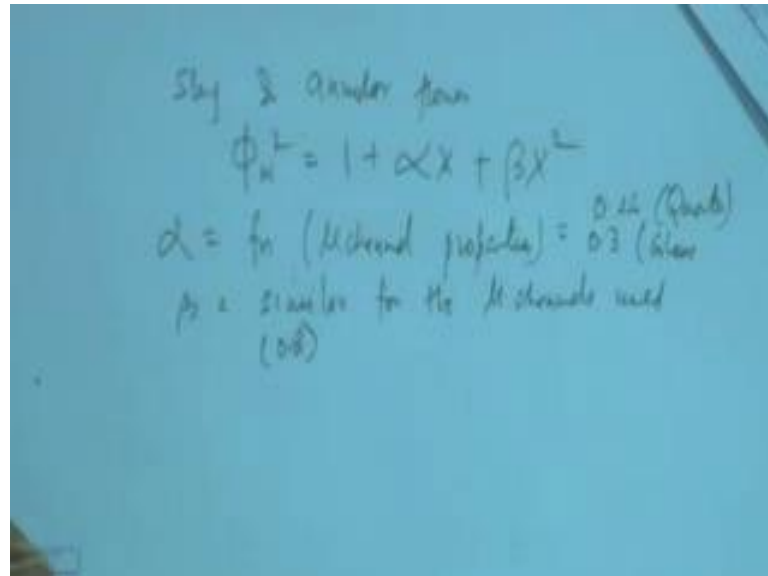 Slug & annular flow
ϕ_w² = 1 + αX + βX²
α = fn (μchannel properties) = (Quartz)
0.3 (Silicon
β = similar for the μchannels used
(0.8)